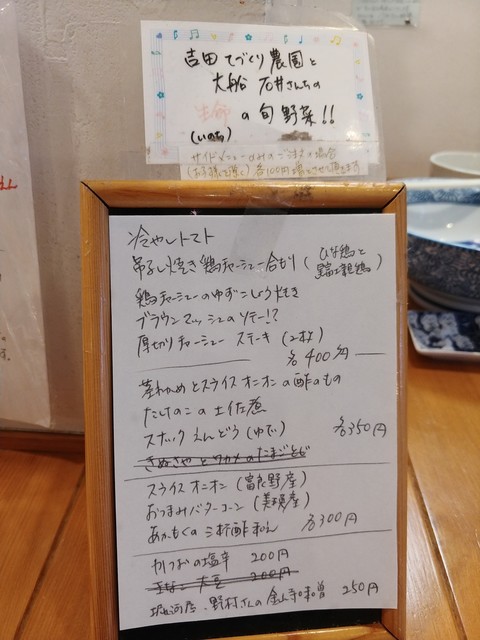 吉田てづくり農園と
大船 石井さんちの
生命の旬野菜!!
(いのち)
サイドメニューのみのご注文の場合
各100円増とさせて頂きます
冷やしトマト
吊るし焼き鶏チャーシュー合もり(ひな鶏と
富士親鶏)
鶏チャーシューのゆずこしょう焼き
ブラウンマッシュのソテー!?
厚切りチャーシューステーキ(2枚)
各400円
茎わかめとスライスオニオンの酢のもの
たけのこの土佐煮
スナックえんどう(ゆで)
各350円
きぬさやとワカメのたまごとじ
スライスオニオン(富良野産)
おつまみバターコーン(美瑛産)
あかもくの三杯酢和え
各300円
かつおの塩辛 200円
きなこ大豆 200円
野村さんの金山寺味噌 250円